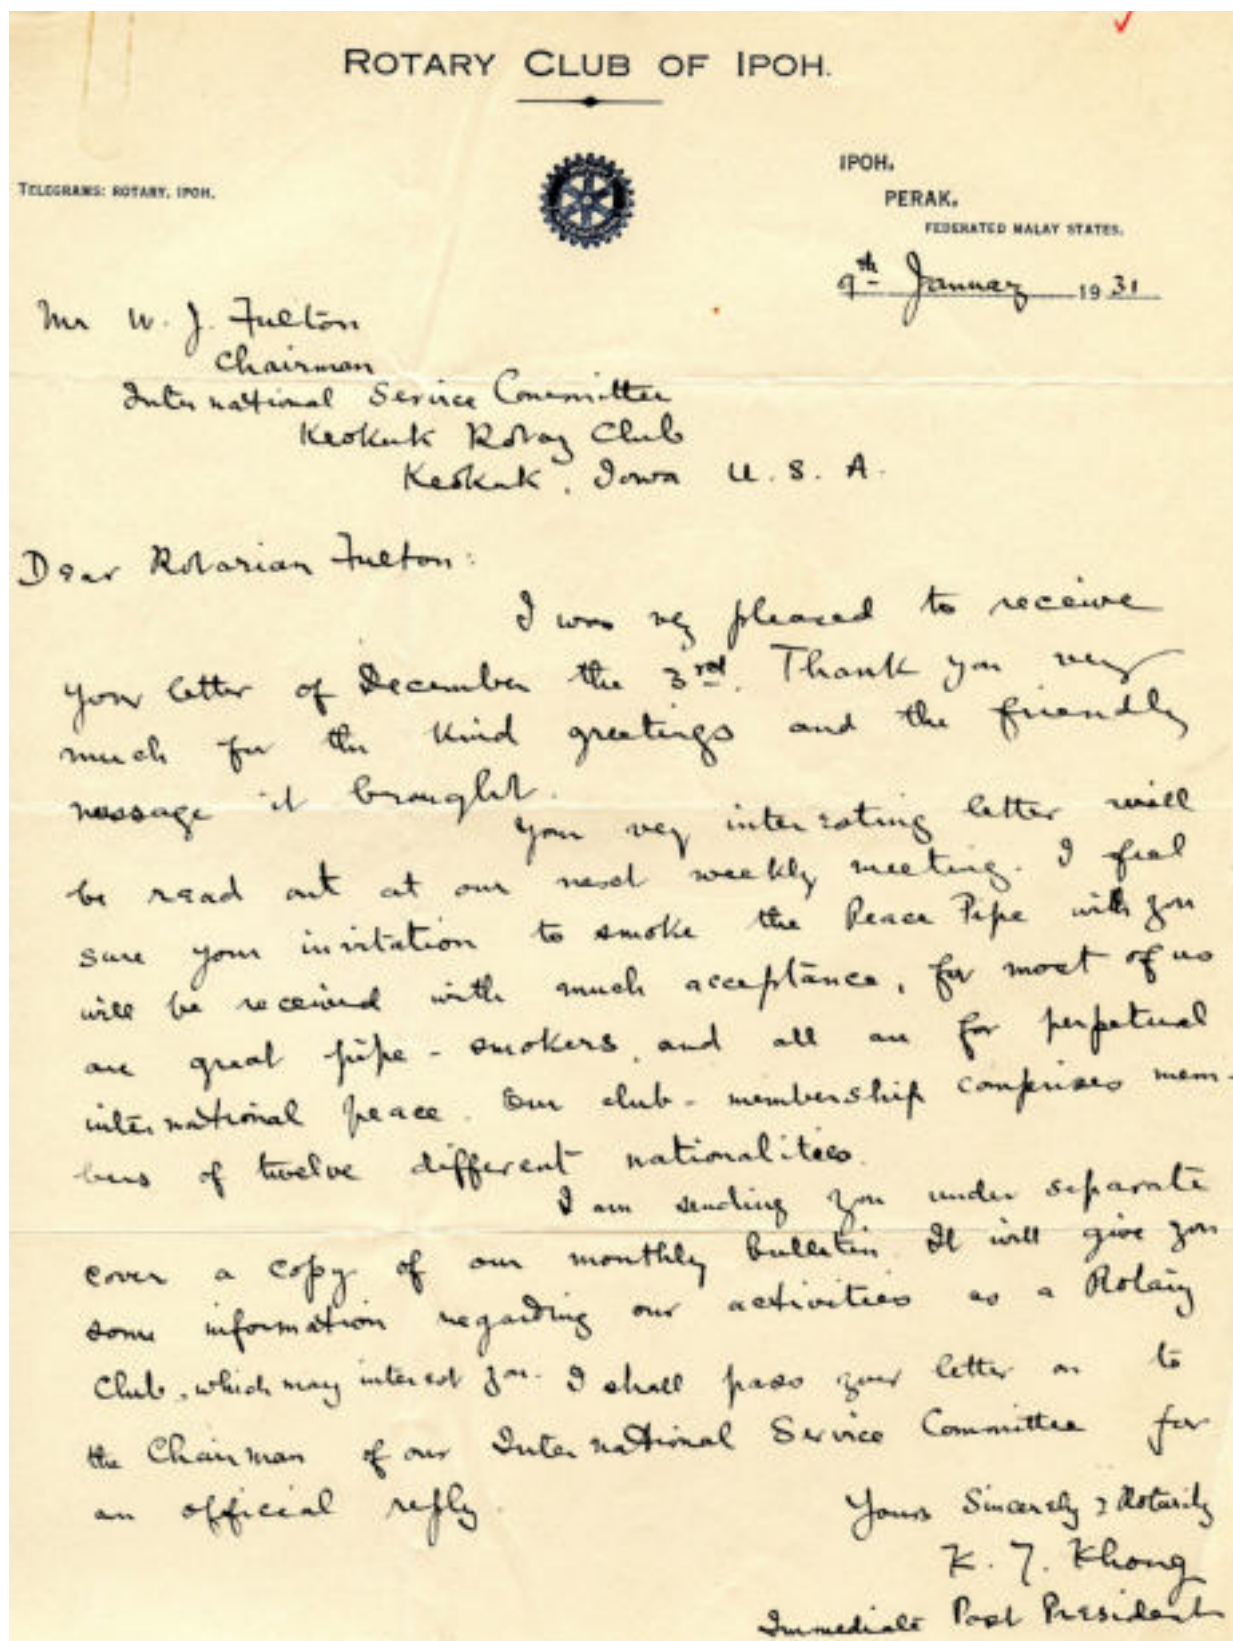 ROTARY CLUB OF IPOH.
TELEGRAMS: ROTARY, IPOH.
IPOH,
PERAK,
FEDERATED MALAY STATES.
9th January 1931
Mr W. J. Fulton
Chairman
International Service Committee
Keokuk Rotary Club
Keokuk, Iowa U. S. A.
Dear Rotarian Fulton:
I was very pleased to receive
your letter of December the 3rd. Thank you very
much for the kind greetings and the friendly
message it brought.
Your very interesting letter will
be read out at our next weekly meeting. I feel
sure your invitation to smoke the Peace Pipe with you
will be received with much acceptance, for most of us
are great pipe-smokers, and all are for perpetual
international peace. Our club-membership comprises mem-
bers of twelve different nationalities.
I am sending you under separate
cover a copy of our monthly bulletin. It will give you
some information regarding our activities as a Rotary
Club, which may interest you. I shall pass your letter on to
the Chairman of our International Service Committee for
an official reply.
Yours Sincerely & Rotarily
K. T. Khong
Immediate Past President